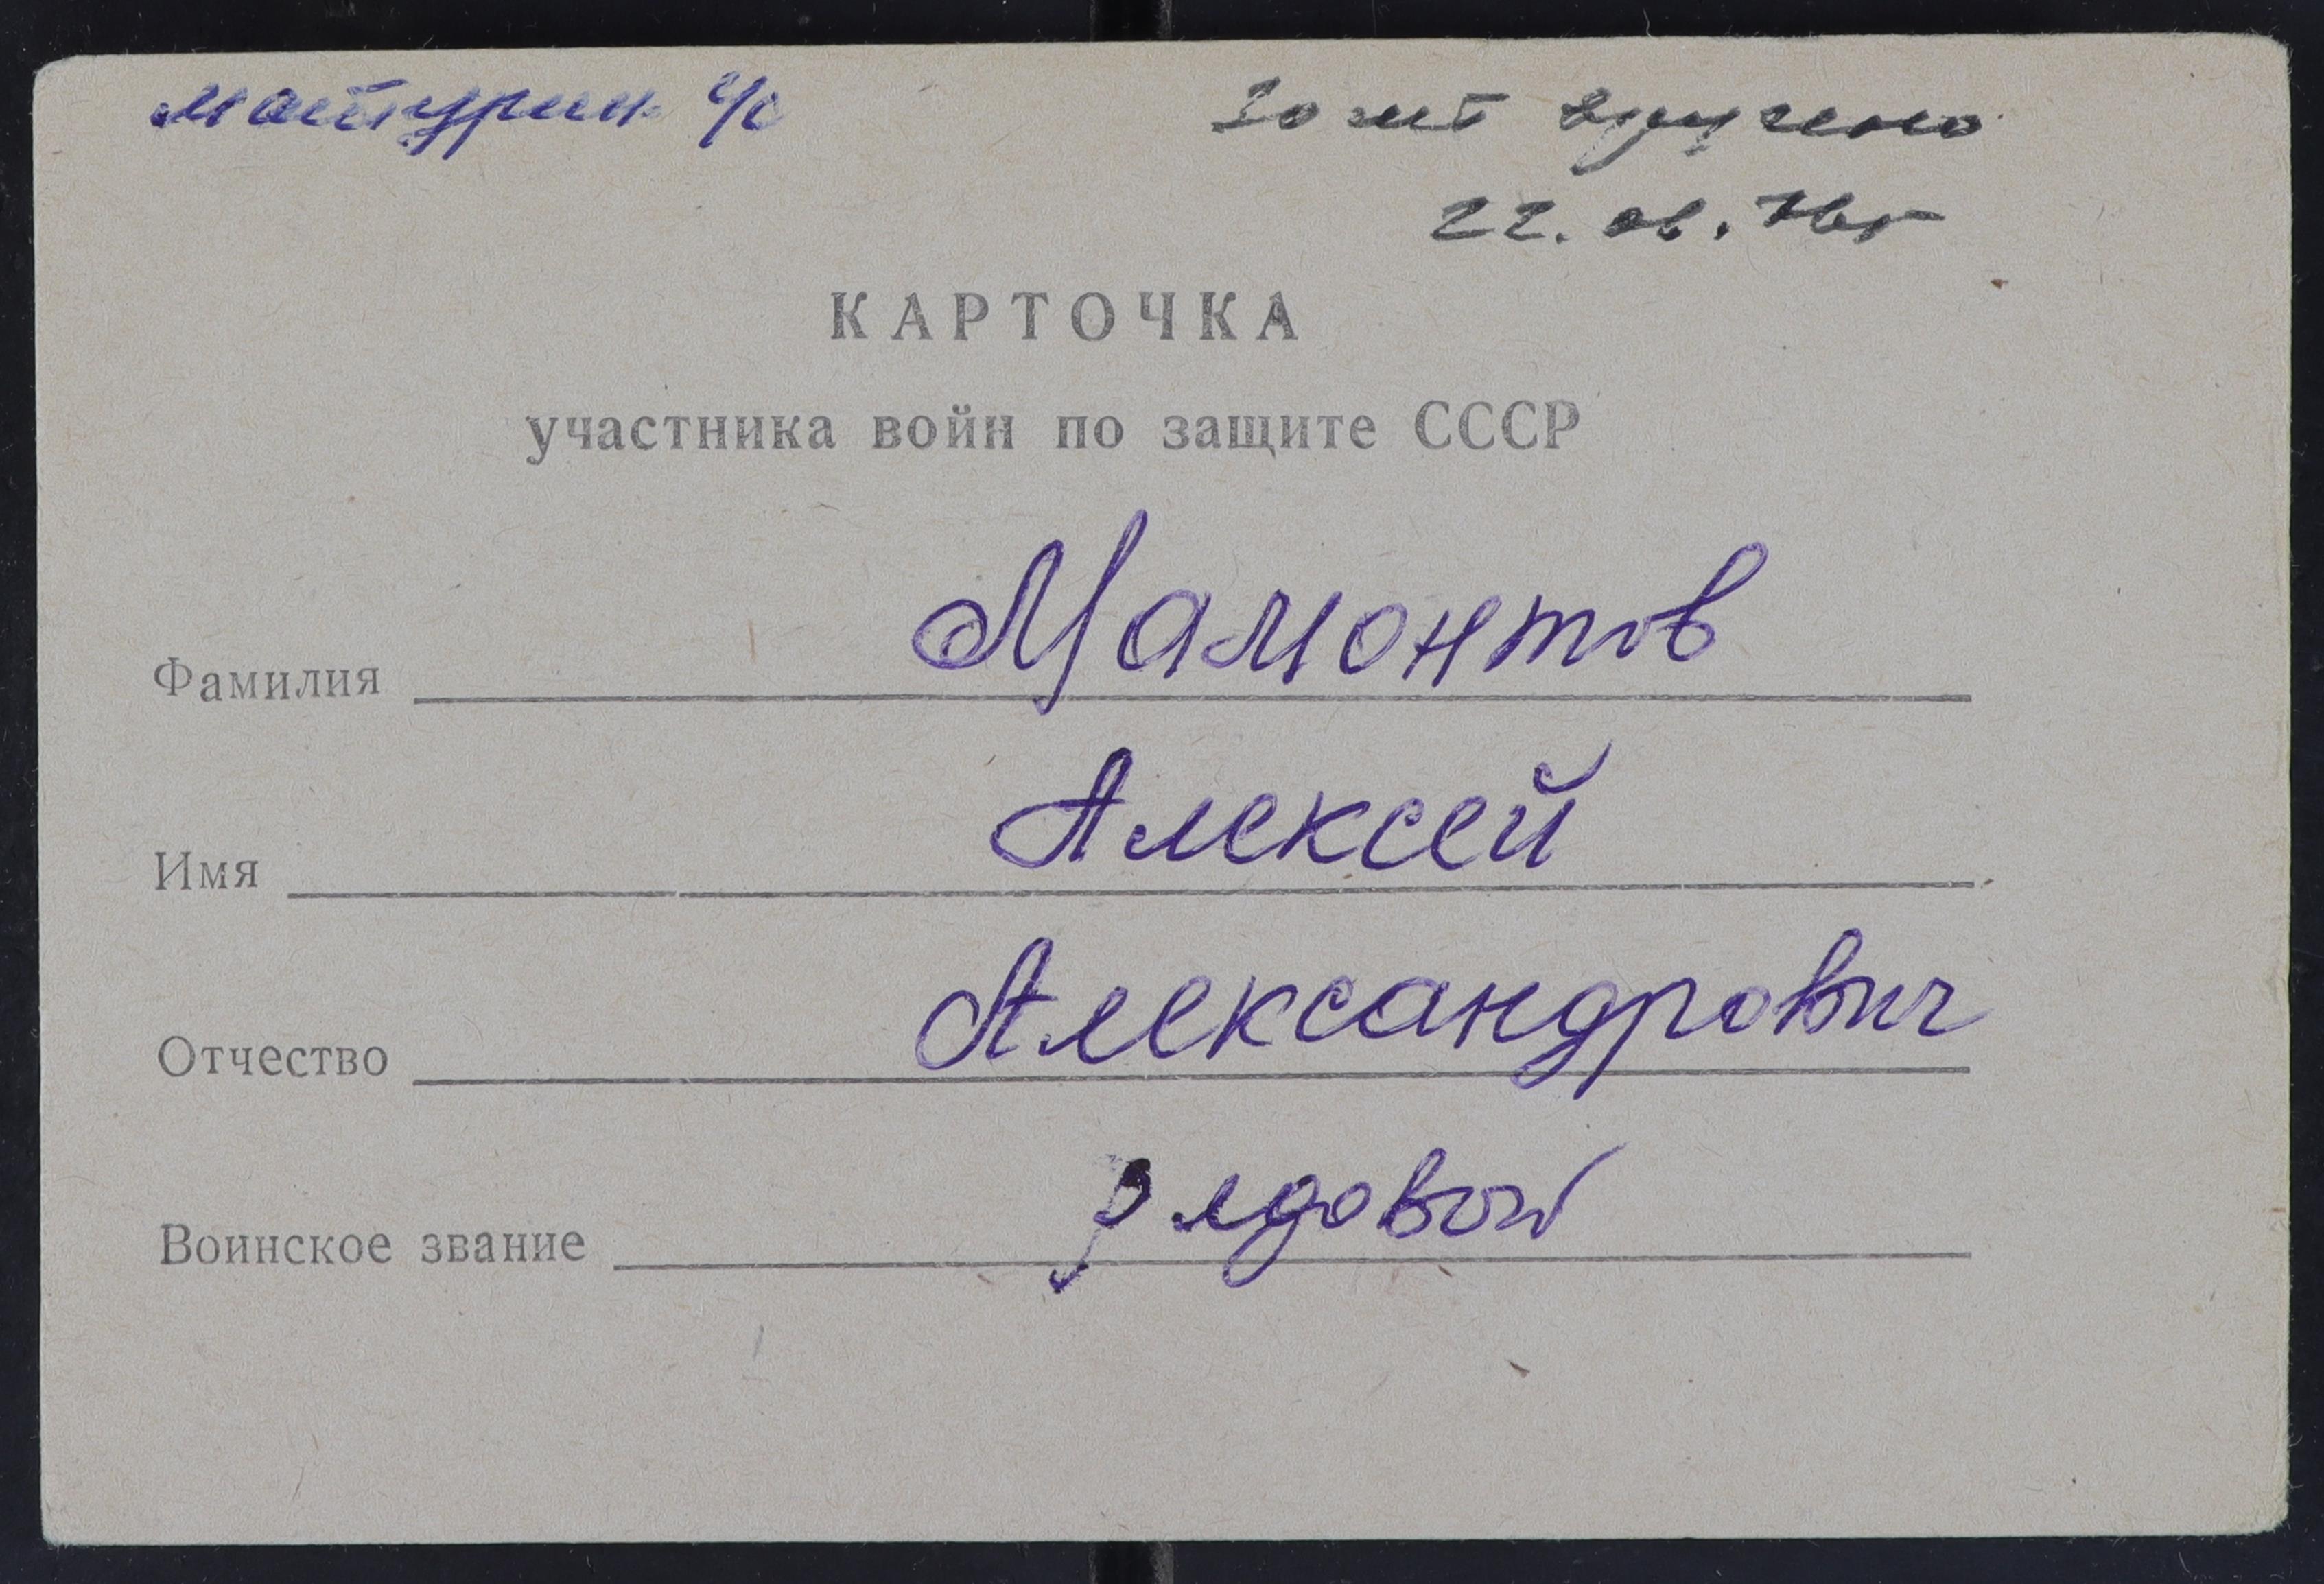 Матурин. с/с
30 лет вручено
22.06.76г
КАРТОЧКА
участника войн по защите СССР
Фамилия Мамонтов
Имя Алексей
Отчество Александрович
Воинское звание рядовой